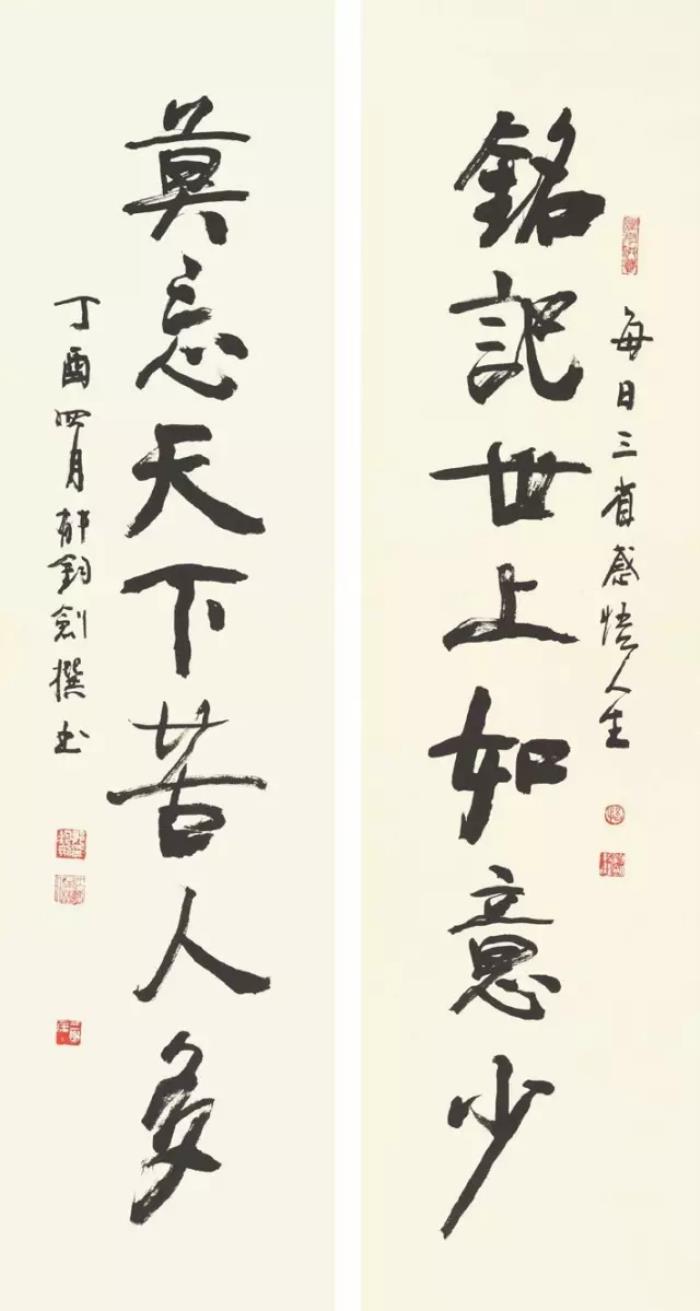 每日三省感悟人生
銘記世上如意少
莫忘天下苦人多
丁酉四月郁鈞劍撰书